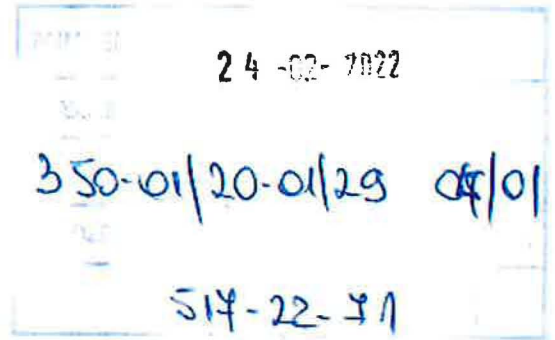 24 -02- 2022
350-01/20-01/29 04/01
517-22-71